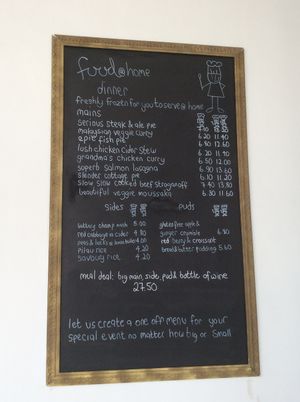 food@home
dinner
freshly frozen for you to serve @ home
mains
serious steak & ale pie 7.40 13.50
malaysian veggie curry 6.20 11.40
epic fish pie 6.50 12.40
lush chicken cider stew 6.20 11.40
grandma's chicken curry 6.50 12.00
superb salmon lasagna 6.90 13.60
slender cottage pie 6.10 11.20
slow slow cooked beef stroganoff 7.40 13.80
beautiful veggie moussaka 6.30 11.60
sides puds
buttery champ mash 5.00 gluten free apple &
red cabbage in cider 4.80 ginger crumble 6.80
peas & leeks 4.00 red berry & croissant
pilau rice 4.20 bread & butter pudding 5.60
savoury rice 4.20
meal deal: big main, side, pud & bottle of wine
27.50
let us create a one off menu for your
special event no matter how big or small